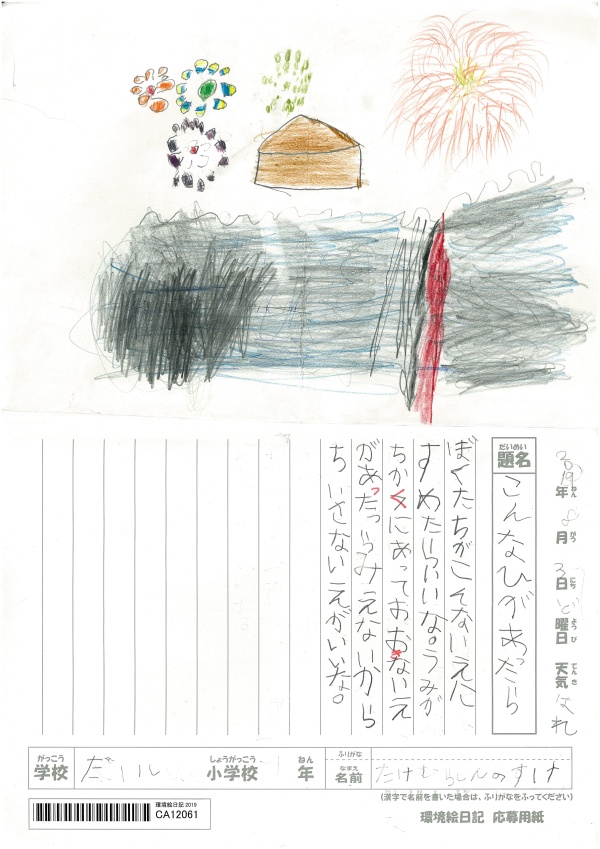 2019年ねん 8月がつ 3日にち ど曜日ようび 天気てんき はれ
だいめい
題名 こんなひがあったら
ぼくたちがこそないえに
すめたらいいな。うみが
ちかくにあっておおないえ
があったらみえないから
ちいさないえがいいな。
がっこう しょうがっこう ねん ふりがな
学校 だいし 小学校 1 年 なまえ 名前 たけむらしんのすけ
(漢字で名前を書いた場合は、ふりがなをふってください)
環境絵日記 2019
CA12061
環境絵日記 応募用紙